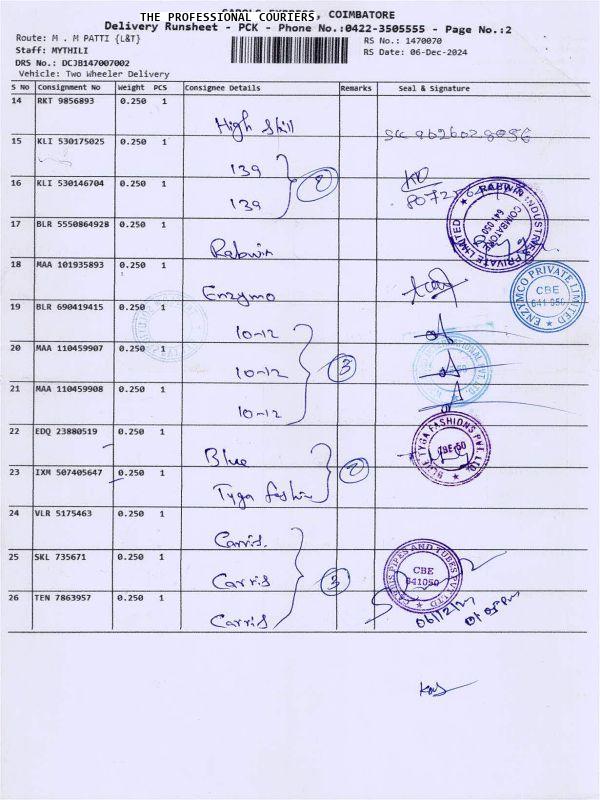 THE PROFESSIONAL COURIERS, COIMBATORE
Delivery Runsheet - PCK - Phone No.:0422-3505555 - Page No.:2
Route: M . M PATTI {L&T}
RS No.: 1470070
Staff: MYTHILI
RS Date: 06-Dec-2024
DRS No.: DCJB147007002
Vehicle: Two Wheeler Delivery
S No Consignment No Weight PCS Consignee Details Remarks Seal & Signature
14 RKT 9856893 0.250 1 High Skill
15 KLI 530175025 0.250 1 139
16 KLI 530146704 0.250 1 139 2
RABWIN INDUSTRIES PRIVATE LIMITED COIMBATORE 641 050
17 BLR 5550864928 0.250 1 Rabwin
18 MAA 101935893 0.250 1 Enzymo
ENZYMCO PRIVATE LIMITED CBE 641 050
19 BLR 690419415 0.250 1 10-12
20 MAA 110459907 0.250 1 10-12 3
21 MAA 110459908 0.250 1 10-12
22 EDQ 23880519 0.250 1 Blue
BLUE TYGA FASHIONS PVT. LTD. CBE-50
23 IXM 507405647 0.250 1 Tyga fashion 2
24 VLR 5175463 0.250 1 Carris.
25 SKL 735671 0.250 1 Carris 3
PIPES AND TUBES PVT LTD CBE 641050
26 TEN 7863957 0.250 1 Carris
06/12/24